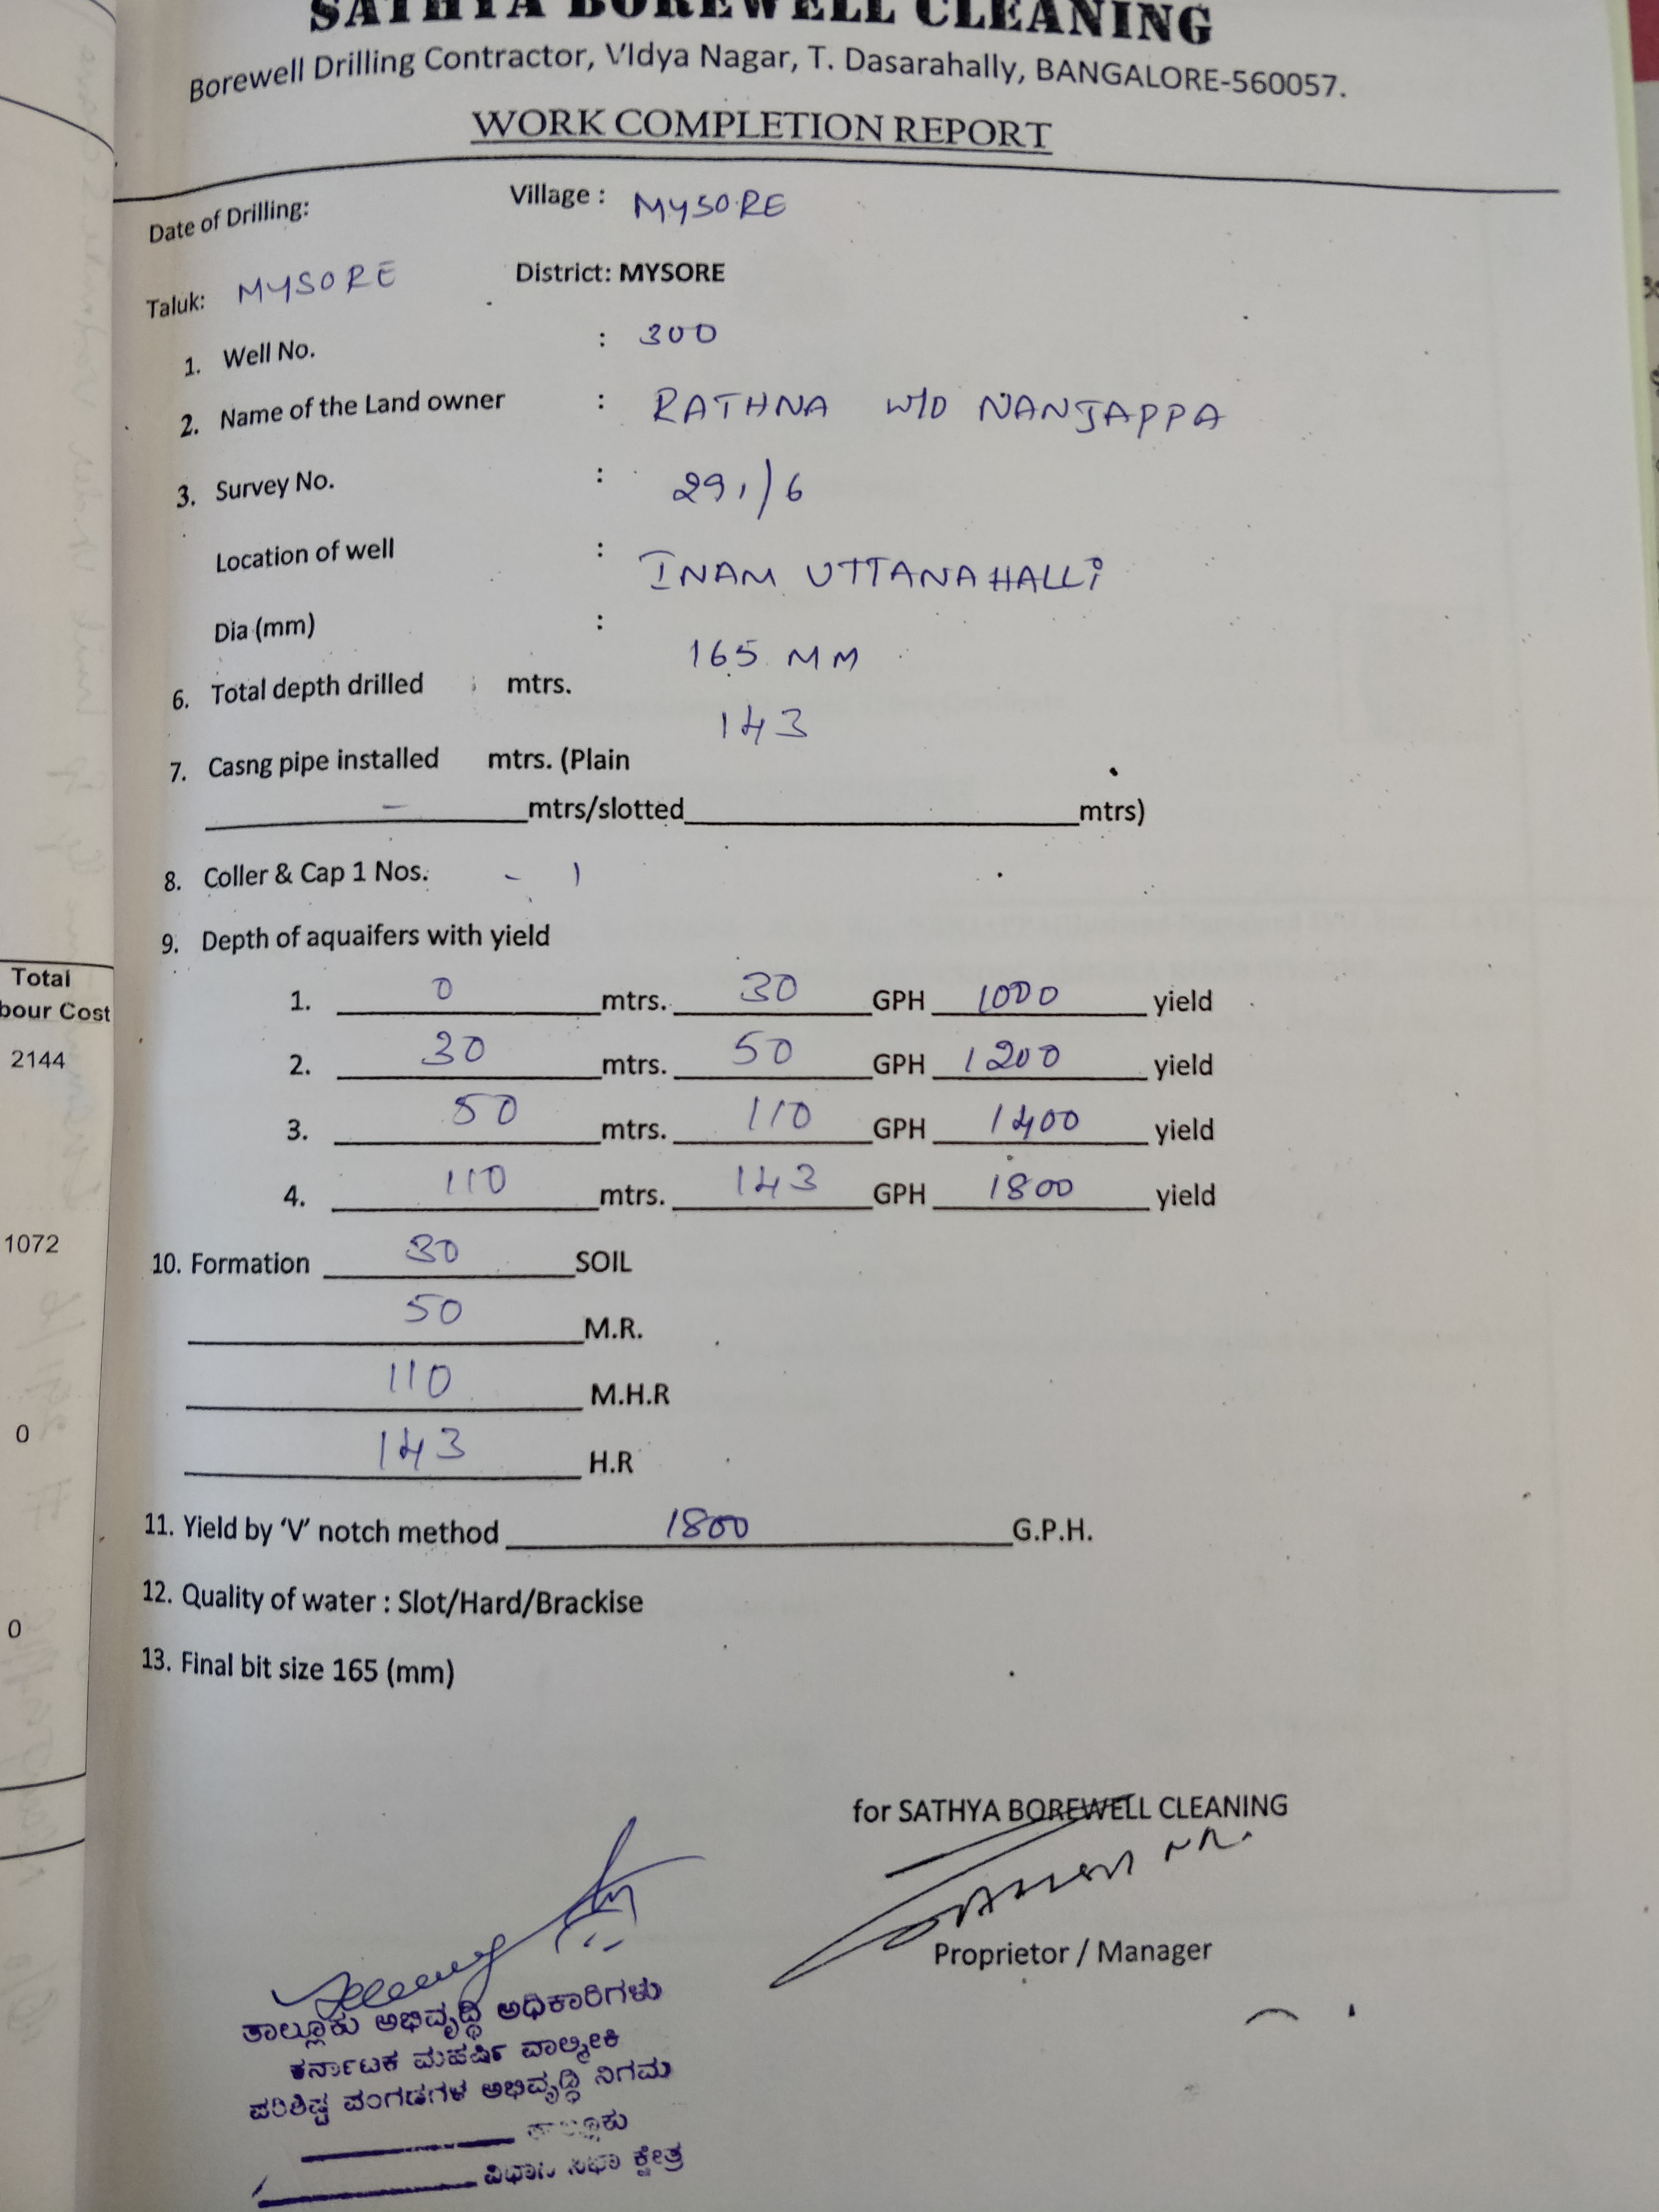 SATHYA BOREWELL CLEANING
Borewell Drilling Contractor, VIdya Nagar, T. Dasarahally, BANGALORE-560057.
WORK COMPLETION REPORT
Date of Drilling: Village : MYSORE
Taluk: MYSORE District: MYSORE
1. Well No. : 300
2. Name of the Land owner : RATHNA W/O NANJAPPA
3. Survey No. : 291/6
Location of well : INAM UTTANAHALLI
Dia (mm) : 165 MM
6. Total depth drilled mtrs. 143
7. Casng pipe installed mtrs. (Plain
– mtrs/slotted mtrs)
8. Coller & Cap 1 Nos. - 1
9. Depth of aquaifers with yield
1. 0 mtrs. 30 GPH 1000 yield
2. 30 mtrs. 50 GPH 1200 yield
3. 50 mtrs. 110 GPH 1400 yield
4. 110 mtrs. 143 GPH 1800 yield
10. Formation 30 SOIL
50 M.R.
110 M.H.R
143 H.R
11. Yield by ‘V’ notch method 1800 G.P.H.
12. Quality of water : Slot/Hard/Brackise
13. Final bit size 165 (mm)
for SATHYA BOREWELL CLEANING
Proprietor / Manager
ತಾಲ್ಲೂಕು ಅಭಿವೃದ್ಧಿ ಅಧಿಕಾರಿಗಳು
ಕರ್ನಾಟಕ ಮಹರ್ಷಿ ವಾಲ್ಮೀಕಿ
ಪರಿಶಿಷ್ಟ ಪಂಗಡಗಳ ಅಭಿವೃದ್ಧಿ ನಿಗಮ
ತಾಲ್ಲೂಕು
ವಿಧಾನ ಸಭಾ ಕ್ಷೇತ್ರ
Total
bour Cost
2144
1072
0
0